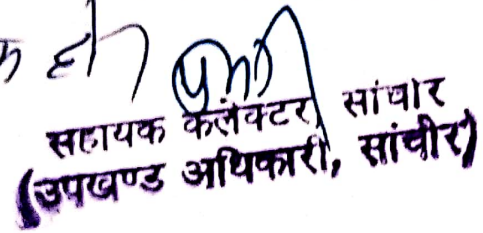 सहायक कलेक्टर, सांचोर
(उपखण्ड अधिकारी, सांचौर)